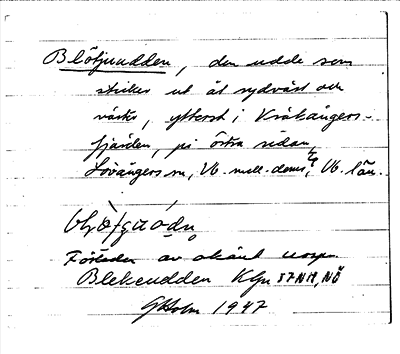 Blötjuudden, den udde som
sticker ut åt sydväst och
väster, ytterst i Kräkångers-
fjärden, på östra sidan,
Lövångers sn, Vb. mell. doms., Vb. län.
Förleden av okänt urspr.
Blekeudden Kfn 57 NV, NÖ
GHolm 1947